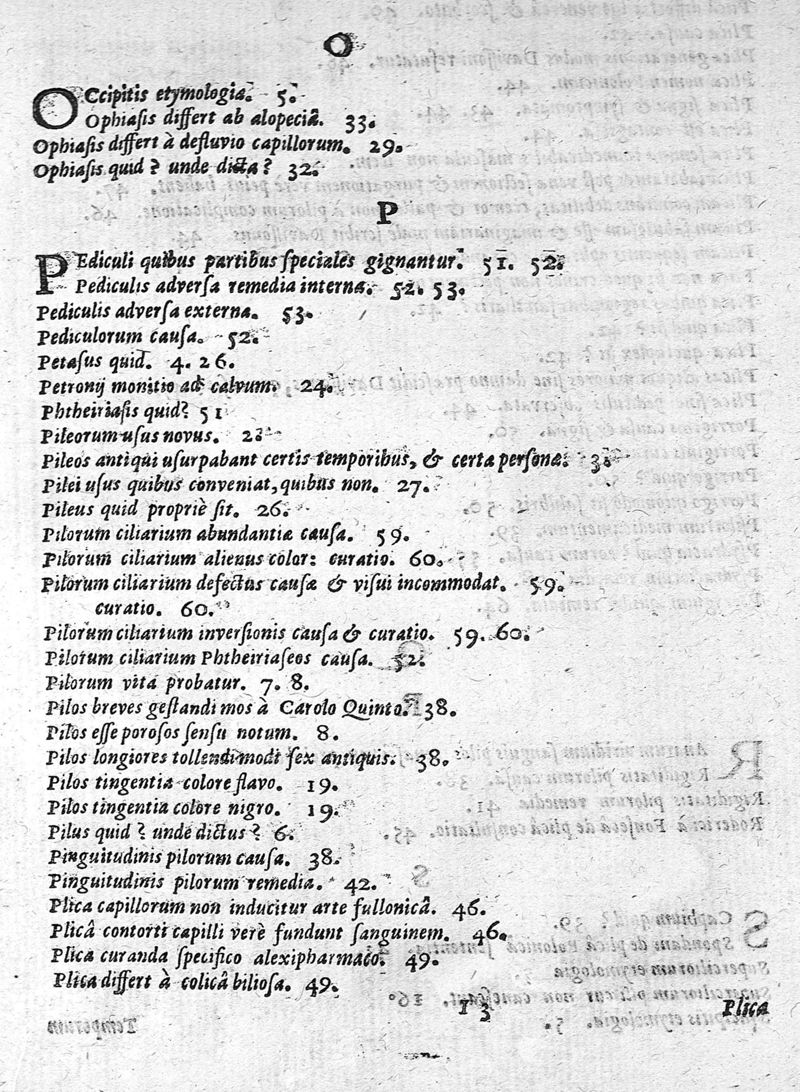 O
OCcipitis etymologia. 5.
Ophiasis differt ab alopeciâ. 33.
Ophiasis differt à defluvio capillorum. 29.
Ophiasis quid? unde dicta? 32.
P
PEdiculi quibus partibus speciales gignantur. 51. 52.
Pediculis adversa remedia interna. 52. 53.
Pediculis adversa externa. 53.
Pediculorum causa. 52.
Petasus quid. 4. 26.
Petronij monitio ad calvum. 24.
Phtheiriasis quid? 51
Pileorum usus novus.
Pileos antiqui usurpabant certis temporibus, & certa personæ.
Pilei usus quibus conveniat, quibus non. 27.
Pileus quid propriè sit. 26.
Pilorum ciliarium abundantiæ causa. 59.
Pilorum ciliarium alienus color: curatio. 60.
Pilorum ciliarium defectus causa & visui incommodat. 59.
curatio. 60.
Pilorum ciliarium inversionis causa & curatio. 59. 60.
Pilorum ciliarium Phtheiriaseos causa. 52.
Pilorum vita probatur. 7. 8.
Pilos breves gestandi mos à Carolo Quinto. 38.
Pilos esse porosos sensu notum. 8.
Pilos longiores tollendi modi sex antiquis. 38.
Pilos tingentia colore flavo. 19.
Pilos tingentia colore nigro. 19.
Pilus quid? unde dictus? 6.
Pinguitudinis pilorum causa. 38.
Pinguitudinis pilorum remedia. 42.
Plica capillorum non inducitur arte fullonicâ. 46.
Plicâ contorti capilli verè fundunt sanguinem. 46.
Plica curanda specifico alexipharmaco. 49.
Plica differt à colicâ biliosa. 49.
I 3
Plica